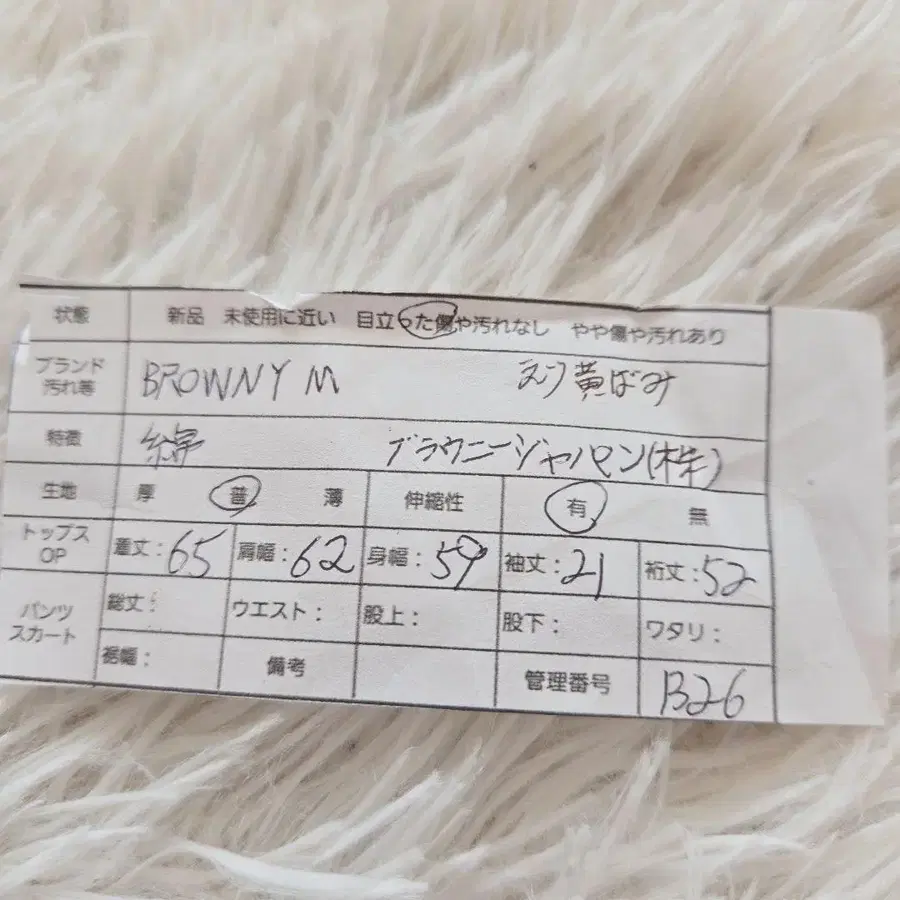 状態 新品 未使用に近い 目立った傷や汚れなし やや傷や汚れあり
ブランド 汚れ等 BROWNY M えり黄ばみ
特徴 綿 ブラウニージャパン(株)
生地 厚 普 薄 伸縮性 有 無
トップス OP 着丈:65 肩幅:62 身幅:59 袖丈:21 裄丈:52
パンツ スカート 総丈: ウエスト: 股上: 股下: ワタリ:
裾幅: 備考 管理番号 B26